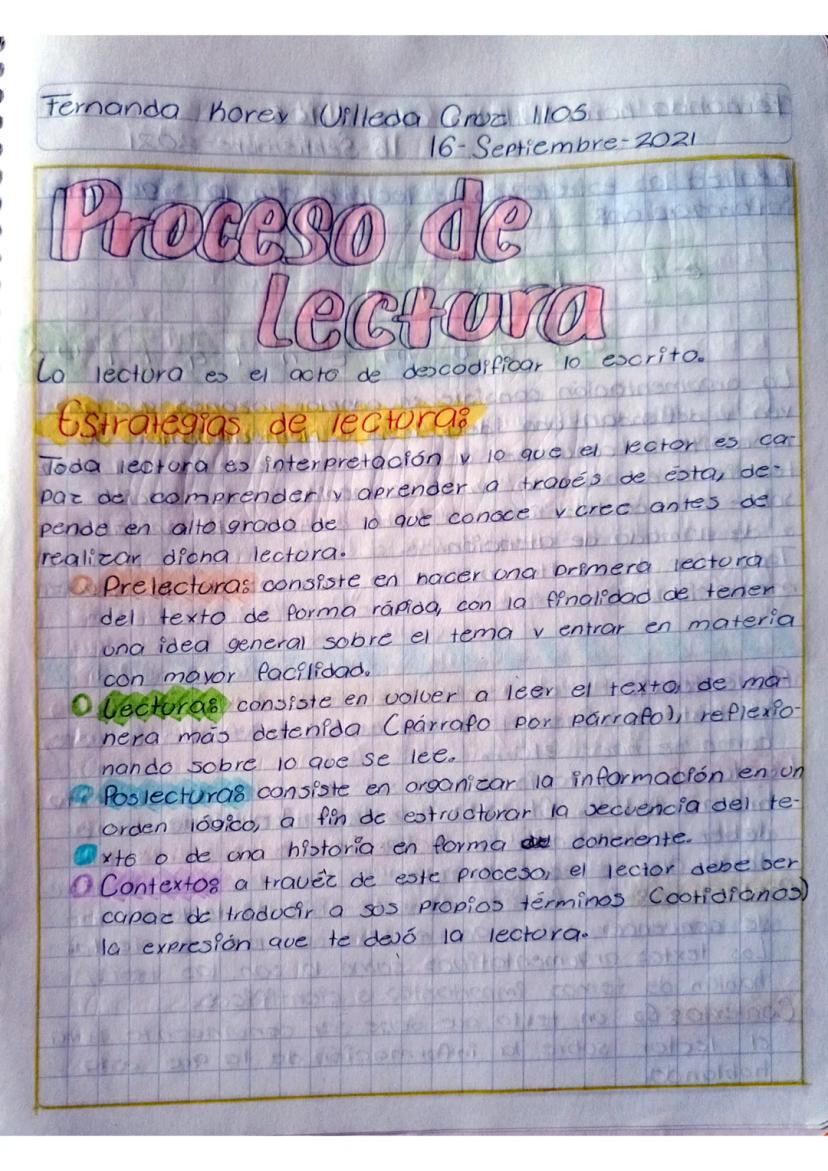 Fernanda Korey Villeda Cruz 1105
16-Septiembre-2021
Proceso de
lectura
La lectura es el acto de descodificar lo escrito.
Estrategias de lectura:
Toda lectura es interpretación y lo que el lector es ca-
paz de comprender y aprender a través de ésta, de-
pende en alto grado de lo que conoce y cree antes de
realizar dicha lectura.
Prelectura: consiste en hacer una primera lectura
del texto de forma rápida, con la finalidad de tener
una idea general sobre el tema y entrar en materia
con mayor facilidad.
Lectura: consiste en volver a leer el texto, de ma-
nera más detenida (párrafo por párrafo), reflexio-
nando sobre lo que se lee.
Poslectura: consiste en organizar la información en un
orden lógico, a fin de estructurar la secuencia del te-
xto o de una historia en forma coherente.
Contexto: a travéz de este proceso, el lector debe ser
capaz de traducir a sus propios términos (cotidianos)
la expresión que te dejó la lectura.